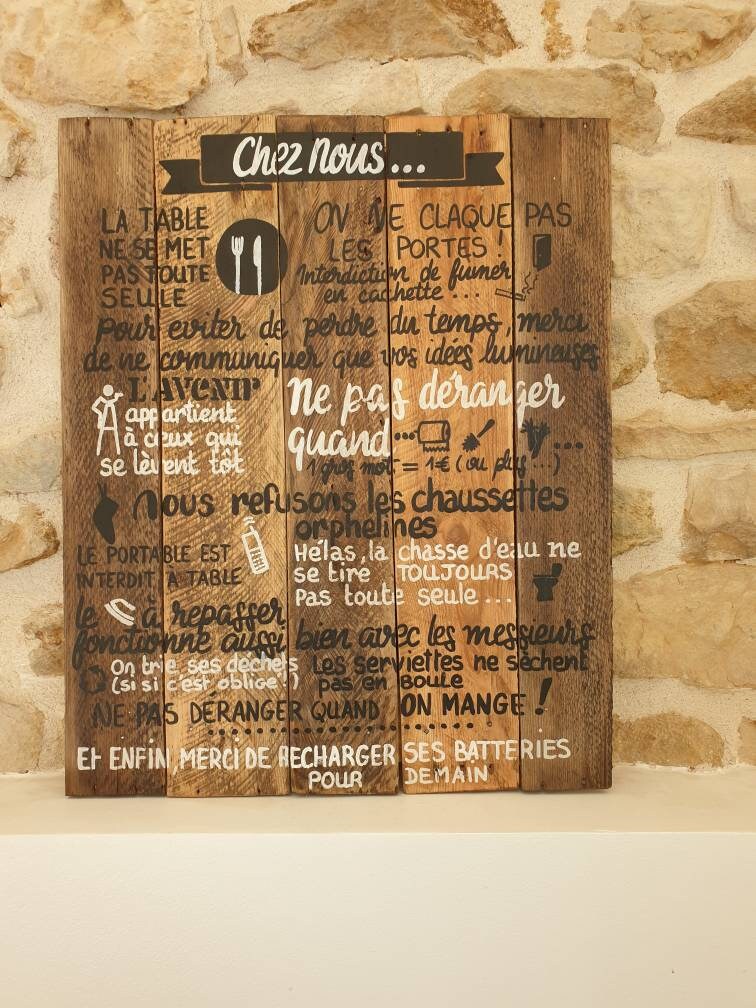 Chez nous...
LA TABLE
NE SE MET
PAS TOUTE
SEULE
ON NE CLAQUE PAS
LES PORTES !
Interdiction de fumer
en cachette ...
Pour eviter de perdre du temps, merci
de ne communiquer que vos idées lumineuses
L'AVENIR
appartient
à ceux qui
se lèvent tôt
Ne pas déranger
quand... ...
1 gros mot = 1€ (ou plus...)
Nous refusons les chaussettes
orphelines
LE PORTABLE EST
INTERDIT A TABLE
Hélas, la chasse d'eau ne
se tire TOUJOURS
pas toute seule ...
le à repasser
fonctionne aussi bien avec les messieurs
On trie ses déchets
(si si c'est obligé!)
Les serviettes ne sèchent
pas en BOULE
NE PAS DÉRANGER QUAND ON MANGE !
Et ENFIN, MERCI DE RECHARGER SES BATTERIES
POUR DEMAIN